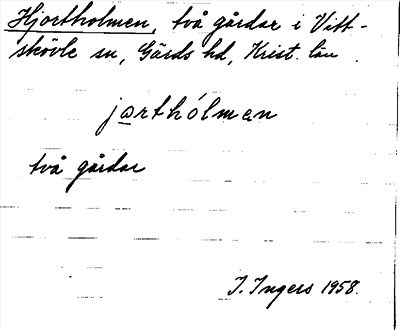 Hjortholmen, två gårdar i Vitt-
skövle sn, Gärds hd, Krist. län
jorthólmen
två gårdar
I. Ingers 1958.